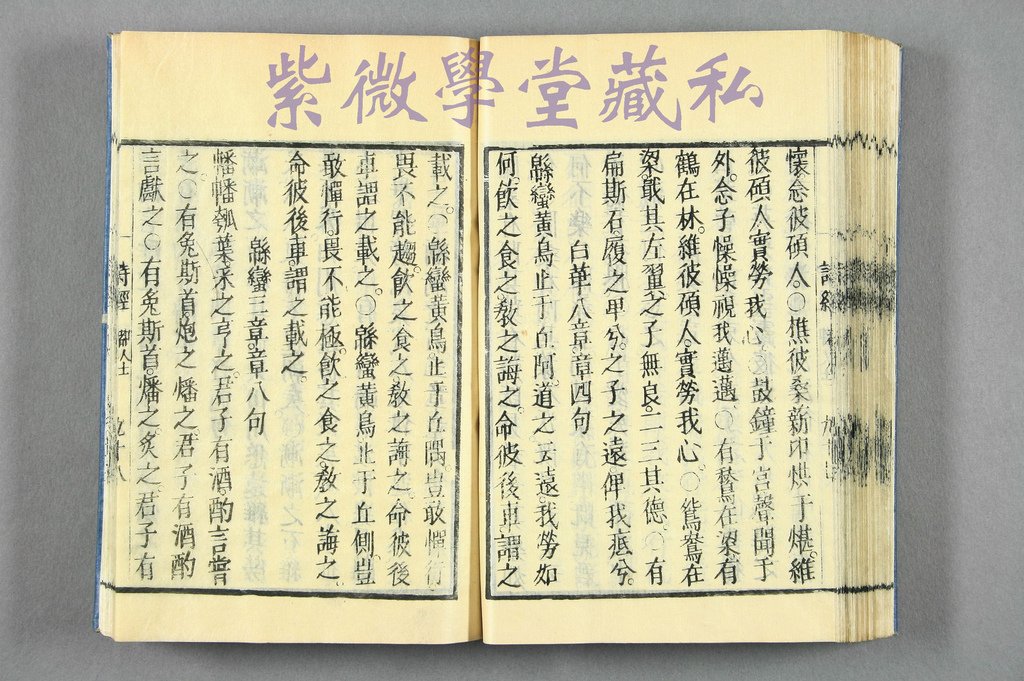 紫微學堂藏私
懷念彼碩人〇樵彼桑薪卬烘于煁維
彼碩人實勞我心〇鼓鐘于宮聲聞于
外念子懆懆視我邁邁〇有鶖在梁有
鶴在林維彼碩人實勞我心〇鴛鴦在
梁戢其左翼之子無良二三其德〇有
扁斯石履之卑兮之子之遠俾我疧兮
白華八章章四句
緜蠻黃鳥止于丘阿道之云遠我勞如
何飲之食之敎之誨之命彼後車謂之
載之〇緜蠻黃鳥止于丘隅豈敢憚行
畏不能趨飲之食之敎之誨之命彼後
車謂之載之〇緜蠻黃鳥止于丘側豈
敢憚行畏不能極飲之食之敎之誨之
命彼後車謂之載之
緜蠻三章章八句
幡幡瓠葉采之亨之君子有酒酌言嘗
之〇有兔斯首炮之燔之君子有酒酌
言獻之〇有兔斯首燔之炙之君子有
詩經 都人士 九十八